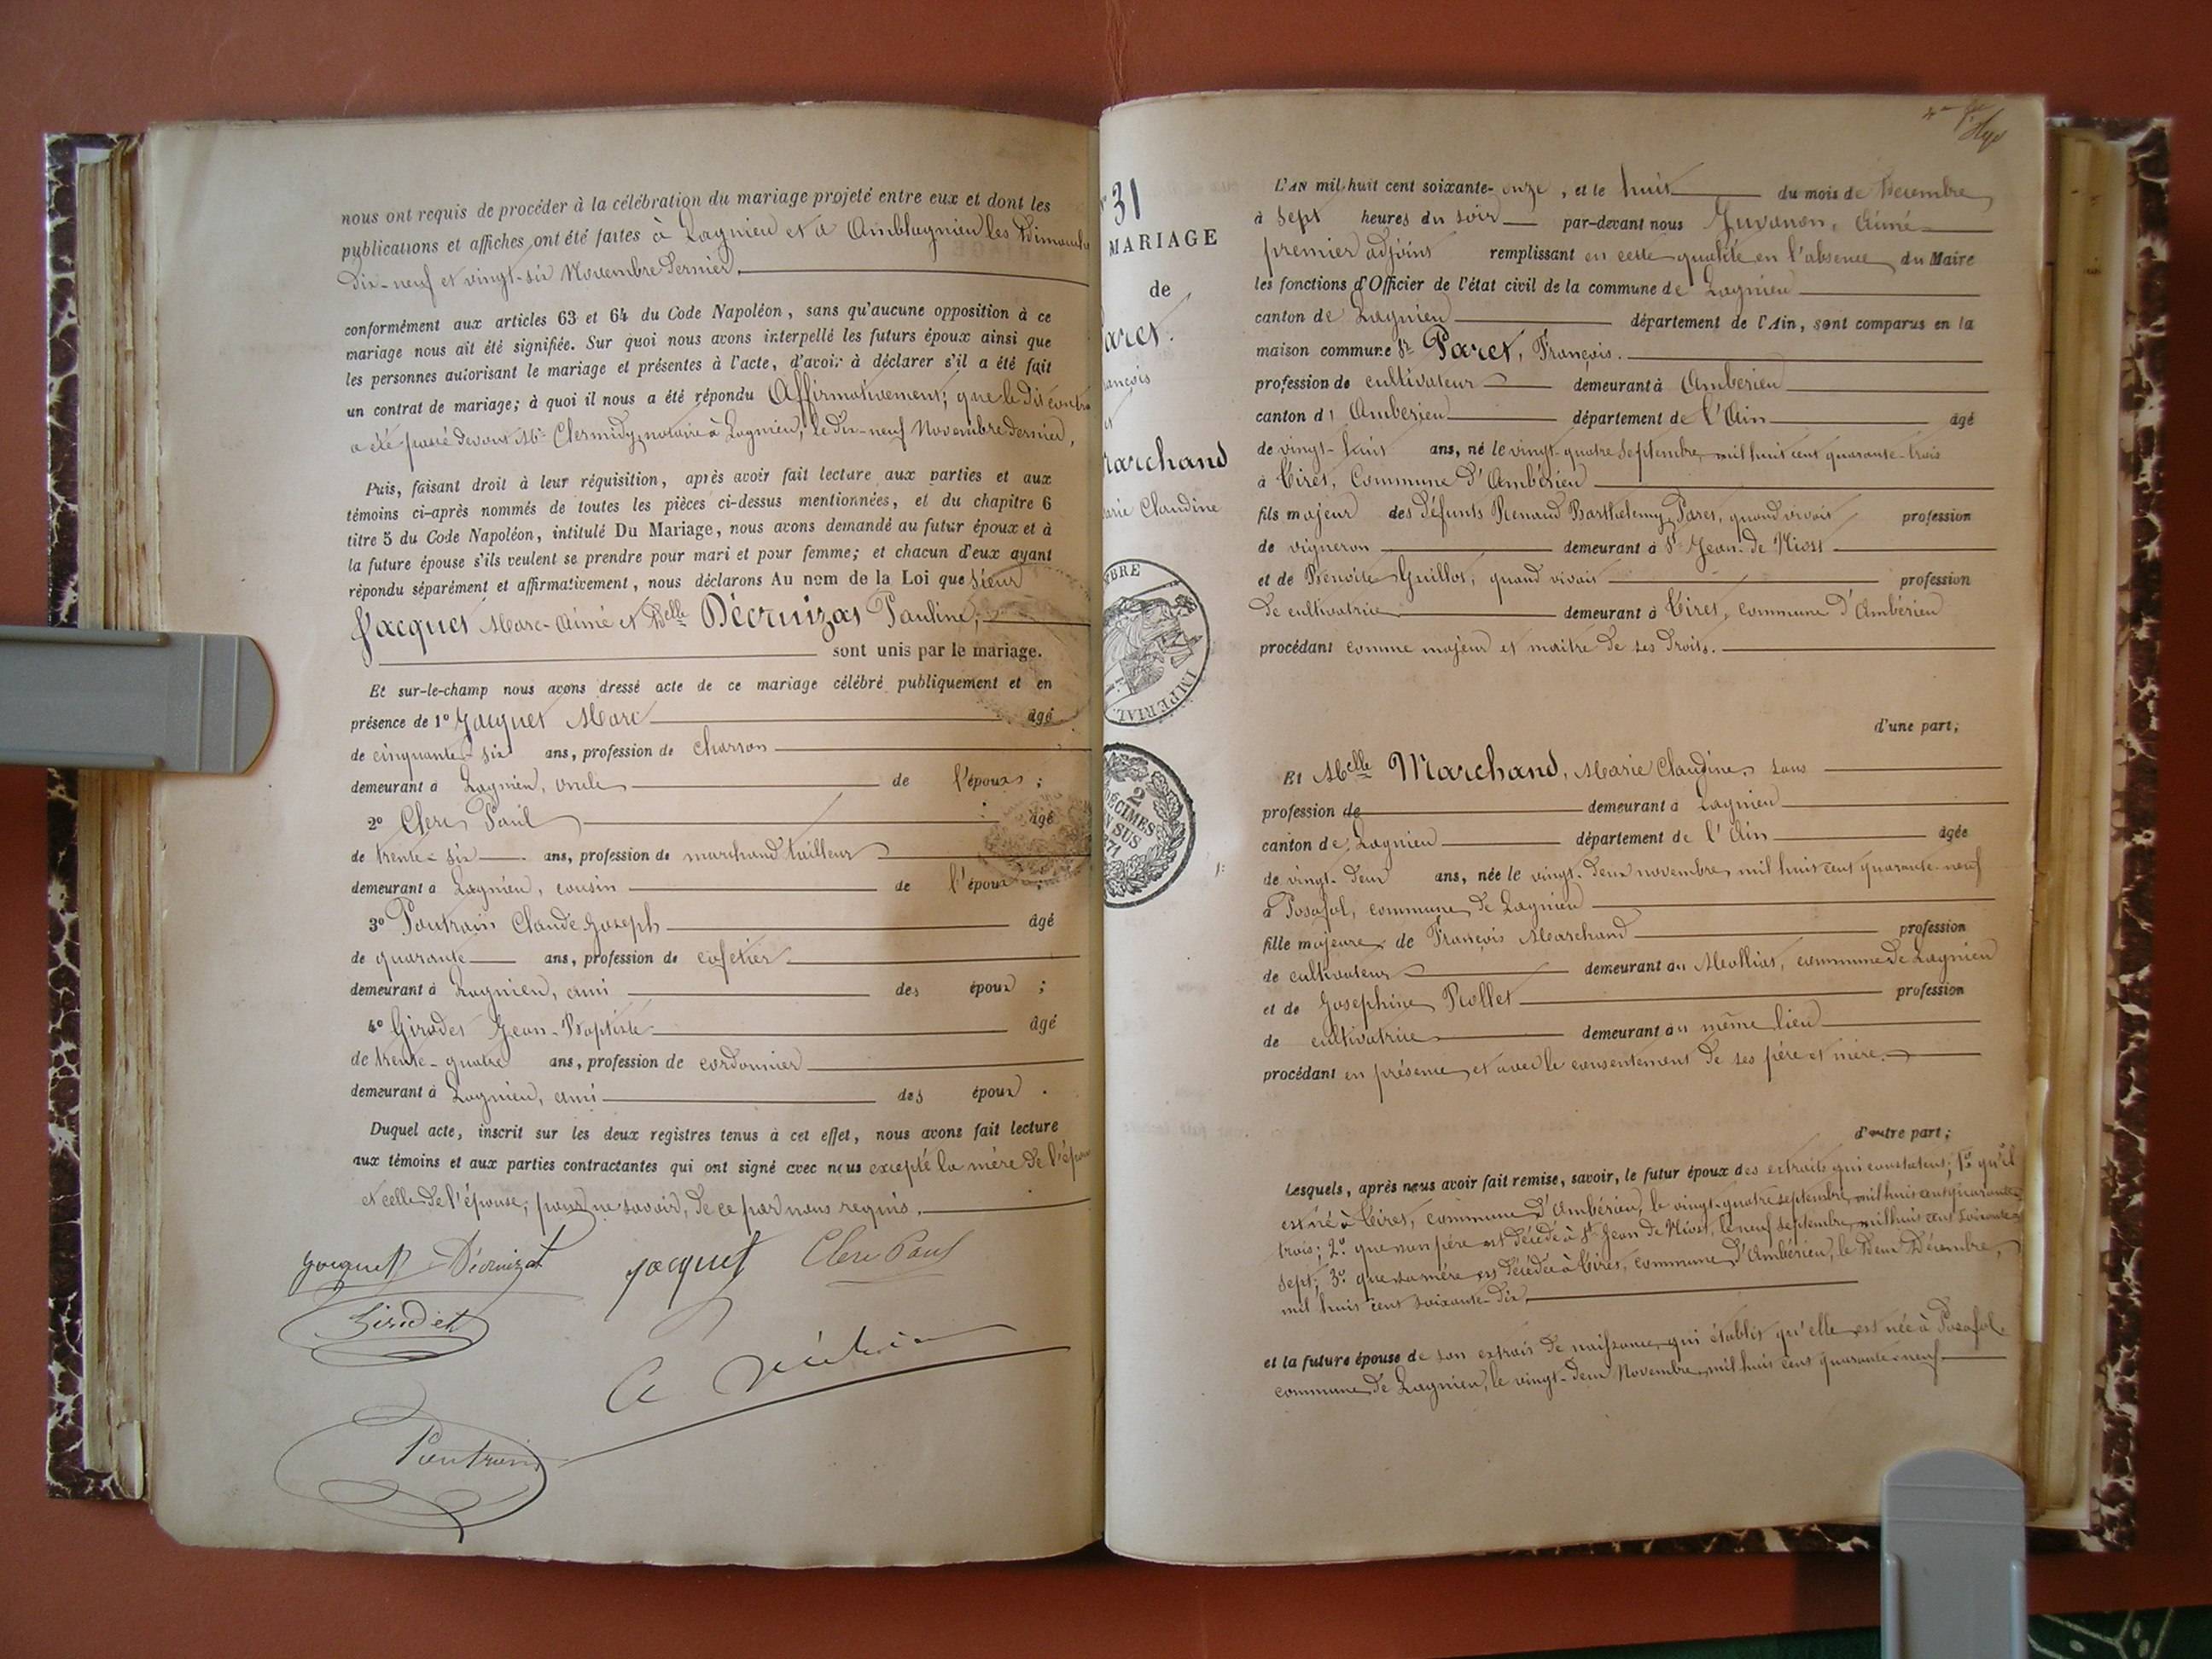 nous ont requis de procéder à la célébration du mariage projeté entre eux et dont les
publications et affiches ont été faites à Lagnieu et à Amblagnieu les Dimanche
dix-neuf et vingt-six Novembre dernier.
conformément aux articles 63 et 64 du Code Napoléon, sans qu'aucune opposition à ce
mariage nous ait été signifiée. Sur quoi nous avons interpellé les futurs époux ainsi que
les personnes autorisant le mariage et présentes à l'acte, d'avoir à déclarer s'il a été fait
un contrat de mariage; à quoi il nous a été répondu Affirmativement; que le dit contra
a été passé devant Me Clermidy, notaire à Lagnieu, le dix-neuf Novembre dernier,
Puis, faisant droit à leur réquisition, après avoir fait lecture aux parties et aux
témoins ci-après nommés de toutes les pièces ci-dessus mentionnées, et du chapitre 6
titre 5 du Code Napoléon, intitulé Du Mariage, nous avons demandé au futur époux et à
la future épouse s'ils veulent se prendre pour mari et pour femme; et chacun d'eux ayant
répondu séparément et affirmativement, nous déclarons Au nom de la Loi que Sieur
Jacquet Marc-Aimé et Delle Décruizat Pauline,
sont unis par le mariage.
Et sur-le-champ nous avons dressé acte de ce mariage célébré publiquement et en
présence de 1° Jacquet Marc âgé
de cinquante-six ans, profession de charron
demeurant à Lagnieu, oncle de l'époux ;
2° Clerc Paul âgé
de trente-six ans, profession de marchand tailleur
demeurant à Lagnieu, cousin de l'époux ;
3° Poutrain Claude Joseph âgé
de quarante ans, profession de cafetier
demeurant à Lagnieu, ami des époux ;
4° Girodet Jean-Baptiste âgé
de trente-quatre ans, profession de cordonnier
demeurant à Lagnieu, ami des époux .
Duquel acte, inscrit sur les deux registres tenus à cet effet, nous avons fait lecture
aux témoins et aux parties contractantes qui ont signé avec nous excepté la mère de l'épou
et celle de l'épouse, pour ne savoir, de ce par nous requis.
Jacquet Décruizat Jacquet Clerc Paul
Girodet
Poutrain
31
MARIAGE
de
aret.
rançois
et
archand
arie Claudine
BRE
IMPERIAL
2
DÉCIMES
EN SUS
1871
L'AN mil huit cent soixante-onze, et le huit du mois de Décembre
à sept heures du soir par-devant nous Juvanon, Aimé
premier adjoint remplissant en cette qualité en l'absence du Maire
les fonctions d'Officier de l'état civil de la commune de Lagnieu
canton de Lagnieu département de l'Ain, sont comparus en la
maison commune Sr Paret, François.
profession de cultivateur demeurant à Ambérieu
canton d' Ambérieu département de l'Ain âgé
de vingt-huit ans, né le vingt-quatre Septembre mil huit cent quarante-trois
à Tiret, Commune d'Ambérieu
fils majeur des défunts Renaud Barthelemy Paret, quand vivait profession
de vigneron demeurant à St Jean-de-Niost
et de Benoite Guillot, quand vivait profession
de cultivatrice demeurant à Tiret, commune d'Ambérieu
procédant comme majeur et maître de ses droits.
d'une part;
Et Melle Marchand, Marie Claudine, sans
profession de demeurant à Lagnieu
canton de Lagnieu département de l'Ain âgée
de vingt-deux ans, née le vingt-deux novembre mil huit cent quarante-neuf
à Posafol, commune de Lagnieu
fille majeure de François Marchand profession
de cultivateur demeurant au Mollias, commune de Lagnieu
et de Josephine Rollet profession
de cultivatrice demeurant au même lieu
procédant en présence et avec le consentement de ses père et mère.
d'autre part;
Lesquels, après nous avoir fait remise, savoir, le futur époux des extraits qui constatent; 1° qu'il
est né à Tiret, commune d'Ambérieu, le vingt-quatre septembre mil huit cent quarante
trois; 2° que son père est décédé à St Jean de Niost, le neuf septembre mil huit cent soixante
sept; 3° que sa mère est décédée à Tiret, commune d'Ambérieu, le deux Décembre,
mil huit cent soixante-dix,
et la future épouse de son extrait de naissance qui établit qu'elle est née à Posafol
commune de Lagnieu, le vingt-deux Novembre mil huit cent quarante-neuf